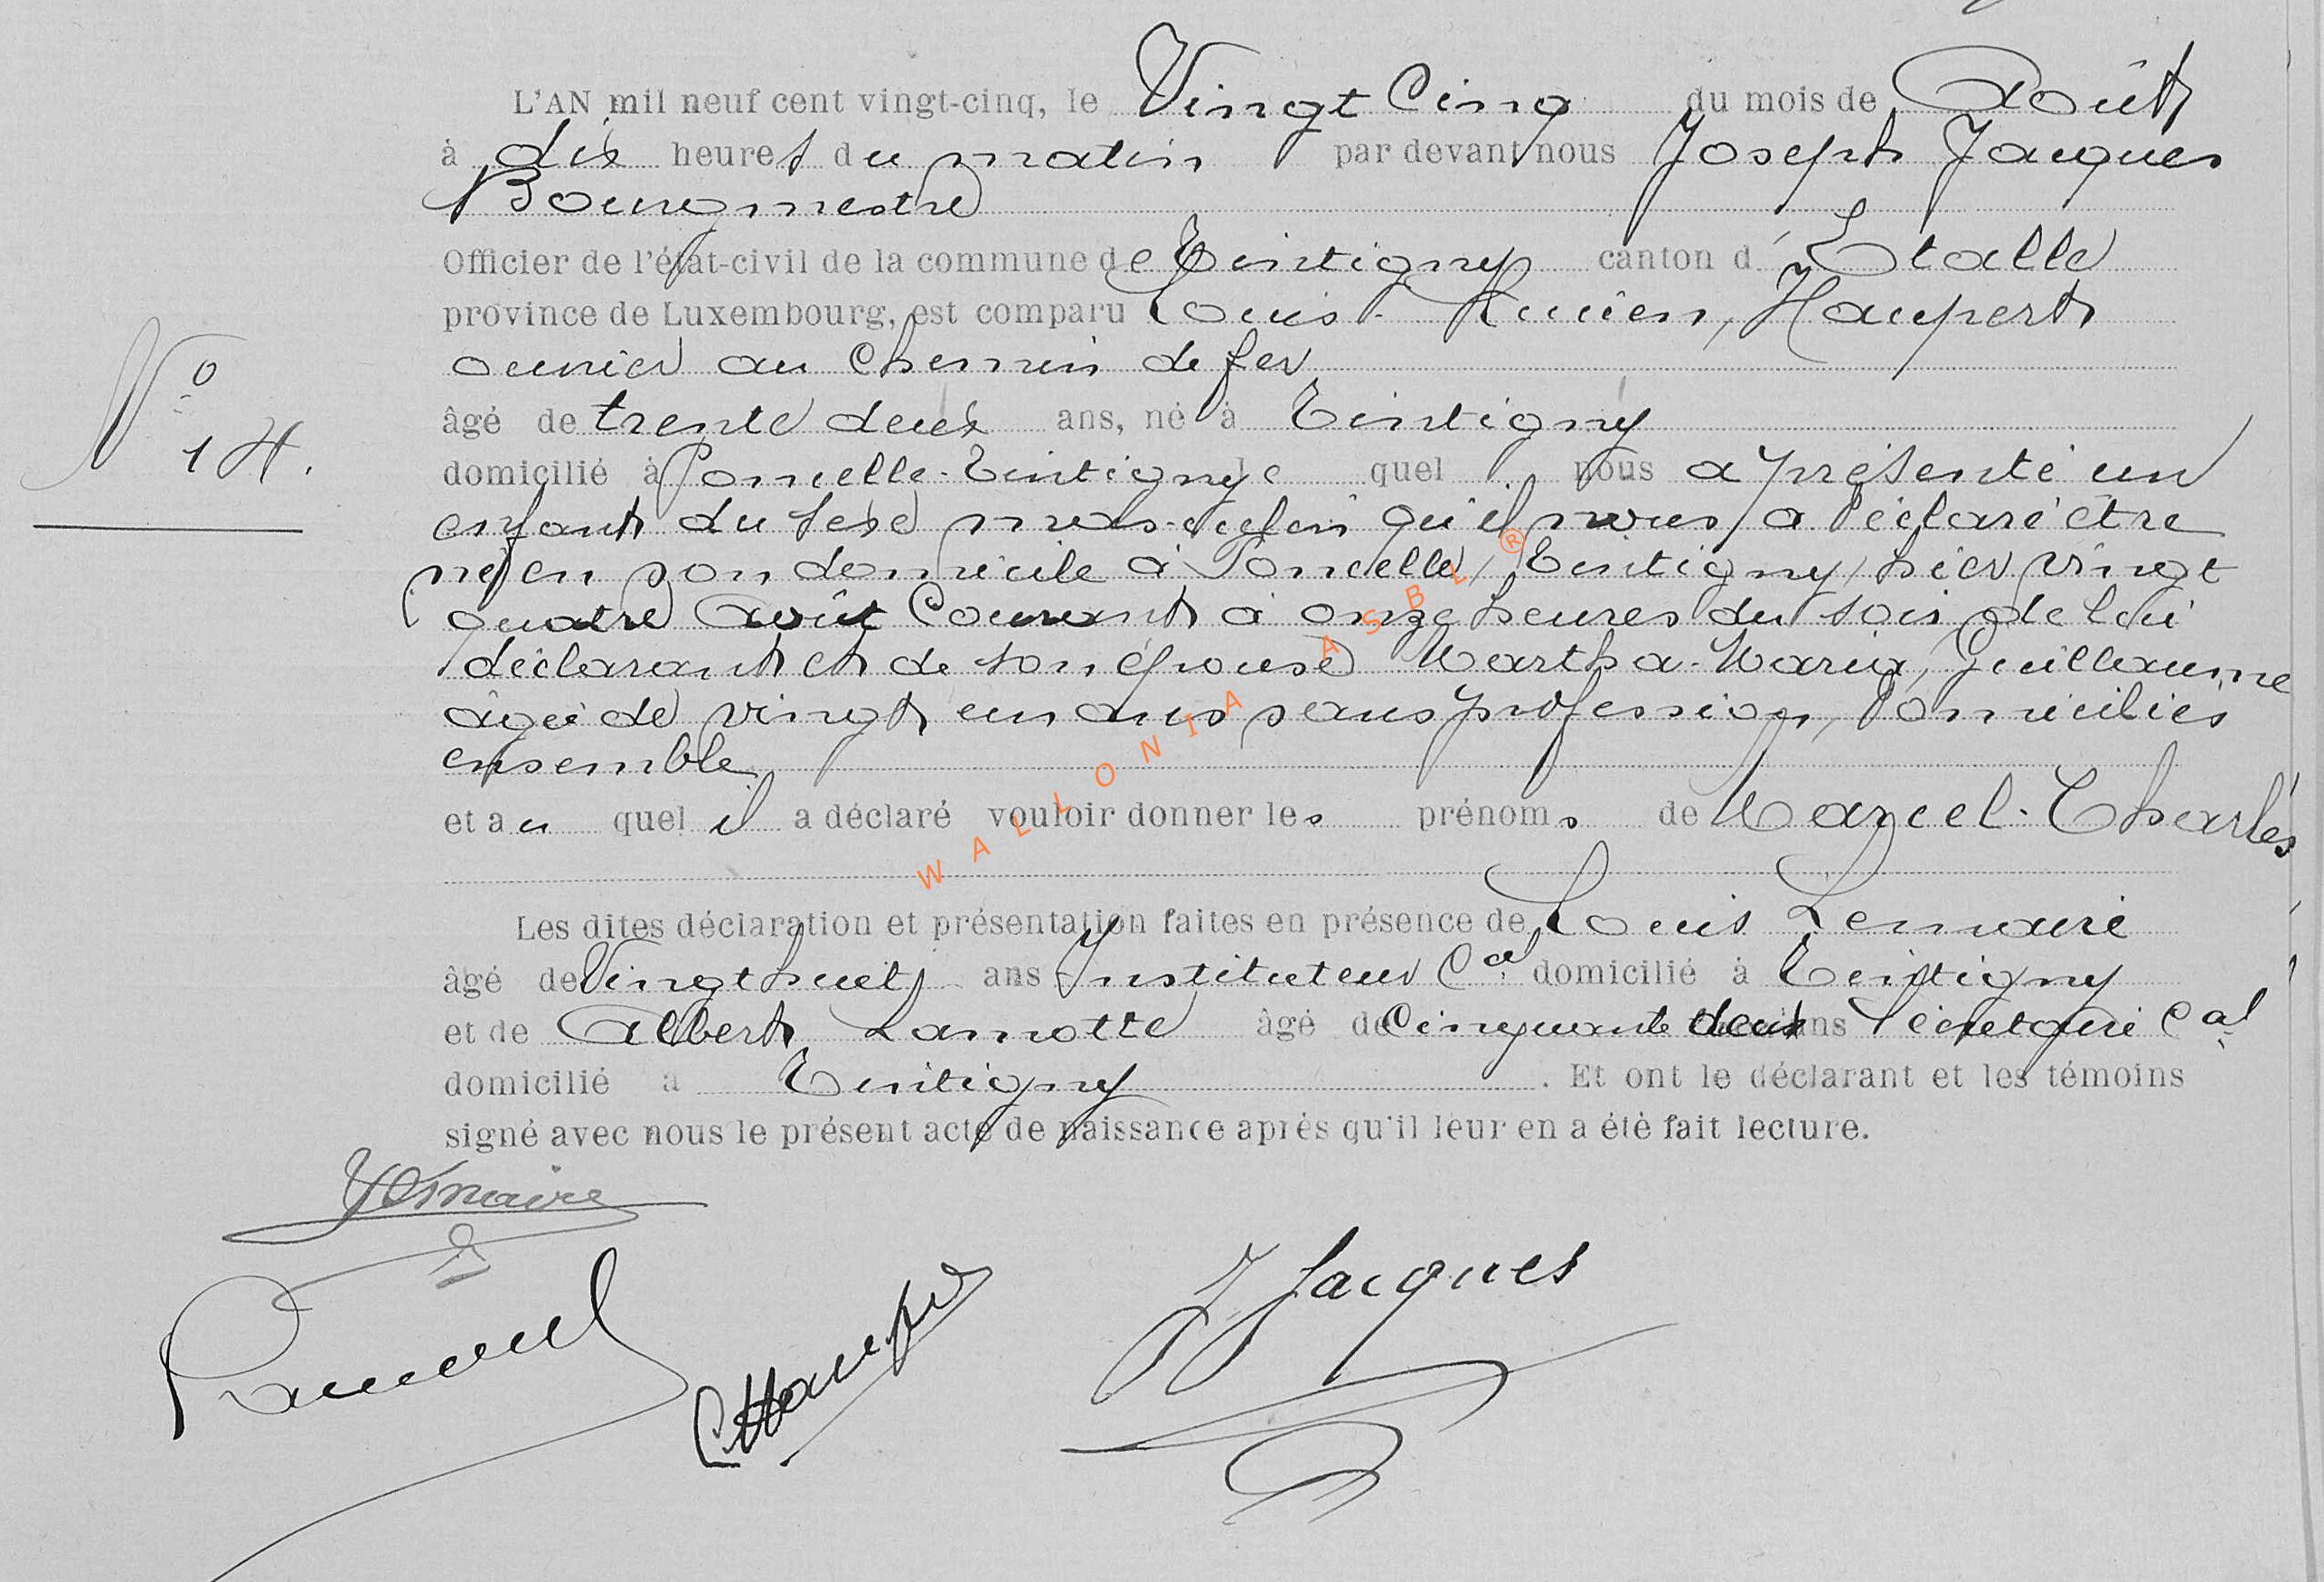 L'AN mil neuf cent vingt-cinq, le Vingt Cinq du mois de Août
à dix heures du matin par devant nous Joseph Jacques
Bourgmestre
Officier de l'état-civil de la commune de Tintigny canton d'Etalle
province de Luxembourg, est comparu Louis-Lucien, Haupert
ouvrier au Chemin de fer
âgé de trente deux ans, né à Tintigny
N° 14.
domicilié à Poncelle-Tintigny le quel nous a présenté un
enfant du sexe masculin qu'il nous a déclaré être
né en son domicile à Poncelle, Tintigny, hier vingt
quatre août Courant à onze heures du soir de lui
déclarant et de son épouse Martha-Maria, Guillaume
âgée de vingt un ans sans profession, domiciliés
ensemble
et au quel il a déclaré vouloir donner les prénoms de Marcel-Charles
Les dites déclaration et présentation faites en présence de Louis Lemaire
âgé de Vingt huit ans Instituteur Cal domicilié à Tintigny
et de Albert Lamotte âgé de Cinquante deux ans Secrétaire Cal
domicilié à Tintigny. Et ont le déclarant et les témoins
signé avec nous le présent acte de naissance après qu'il leur en a été fait lecture.
WALLONIA ASBL ®
Lemaire
J Jacques